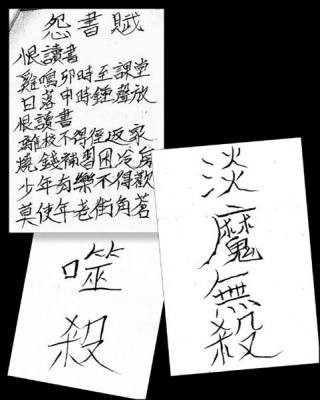 怨書賦
恨讀書
雞鳴卯時至課堂
日落申時鐘聲放
恨讀書
離校不得徑返家
燒錢補習困冷
少年有樂不得歡
莫使年老街角蒼
噬殺
淡魔無殺